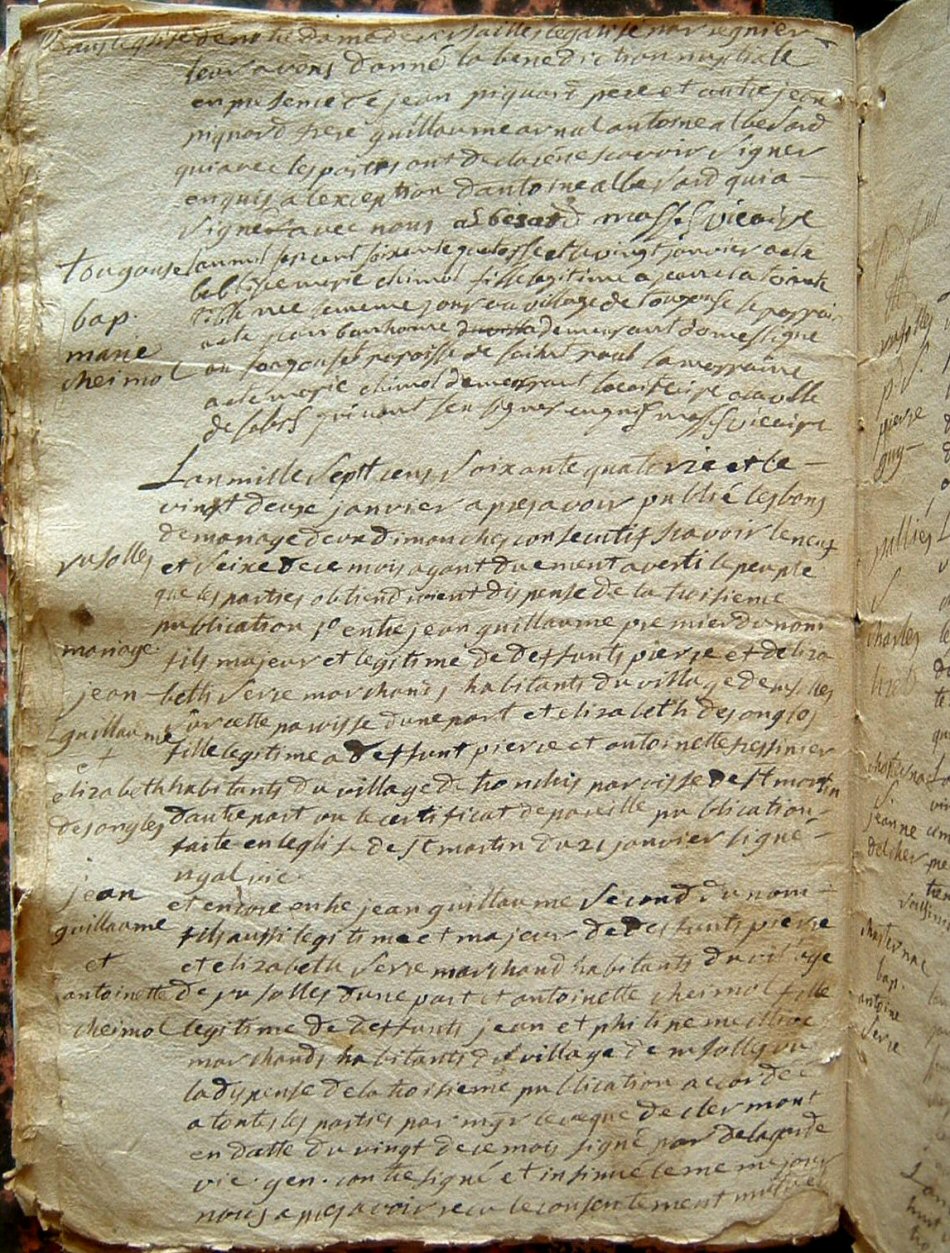 Dans leglise de notre dame de versailles legalisé par regnier
leur avons donné la benediction nuptiale
en presence de jean piquard pere et autre jean
piquard frere guillaume arnal antoine albesard
qui avec les parties ont declaré ne scavoir signer
enquis a lexception dantoine albesard qui a
signé avec nous albesard mas vicaire
tougouse
bap.
marie
cheimol
lan mil sept cent soixante quatorse et le vingt janvier a eté
baptisée marie cheimol fille legitime a jean et a
née le meme jour au village de tougouse le parrain
a eté jean bonhoure demeurant domestique
au tougouse paroisse de saint paul la marraine
a eté marie cheimol demeurant locataire a la ville
de salers qui n'ont seu signer enquis mas vicaire
Lan mille sept cens soixante quatorze et le
vingt deux janvier apres avoir publié les bans
de mariage deux dimanches consecutifs scavoir le neuf
et seize de ce mois ayant duement averti le peuple
que les parties obtiendroient dispense de la troisieme
publication 1º entre jean guillaume premier du nom
fils majeur et legitime de deffunts pierre et de eliza
beth serre marchands habitants du village de rusolles
sur cette paroisse dune part et elizabeth desongles
fille legitime a deffunt pierre et antoinette
habitants du village de tronchis paroisse de st martin
dautre part vu le certificat de pareille publication
faite en leglise de st martin du 21 janvier signé
vic.
rusolles
mariage
jean
guillaume
et
elizabeth
desongles
et encore entre jean guillaume second du nom
fils aussi legitime et majeur de deffunts pierre
et elizabeth serre marchand habitants du village
de rusolles dune part et antoinette cheimol fille
legitime de deffunts jean et philipe
marchands habitants du village de rusolles vu
la dispense de la troisieme publication accordée
a toutes les parties par mgr leveque de clermont
en datte du vingt de ce mois signé par delagarde
vic. gen. contresigné et insinué le meme jour
nous apres avoir recu le consentement mutuel
jean
guillaume
et
antoinette
cheimol
rusolles
p. s.
pierre
guy
charles
jeanne
delcher
chasternac
bap.
antoine
serre